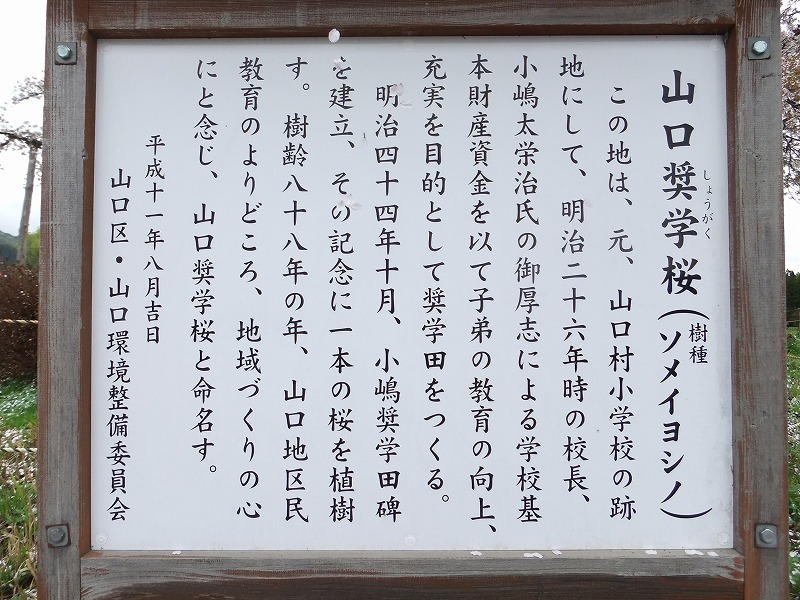 山口奨学桜（樹種 ソメイヨシノ）
しょうがく
この地は、元、山口村小学校の跡
地にして、明治二十六年時の校長、
小嶋太栄治氏の御厚志による学校基
本財産資金を以て子弟の教育の向上、
充実を目的として奨学田をつくる。
明治四十四年十月、小嶋奨学田碑
を建立、その記念に一本の桜を植樹
す。樹齢八十八年の年、山口地区民
教育のよりどころ、地域づくりの心
にと念じ、山口奨学桜と命名す。
平成十一年八月吉日
山口区・山口環境整備委員会